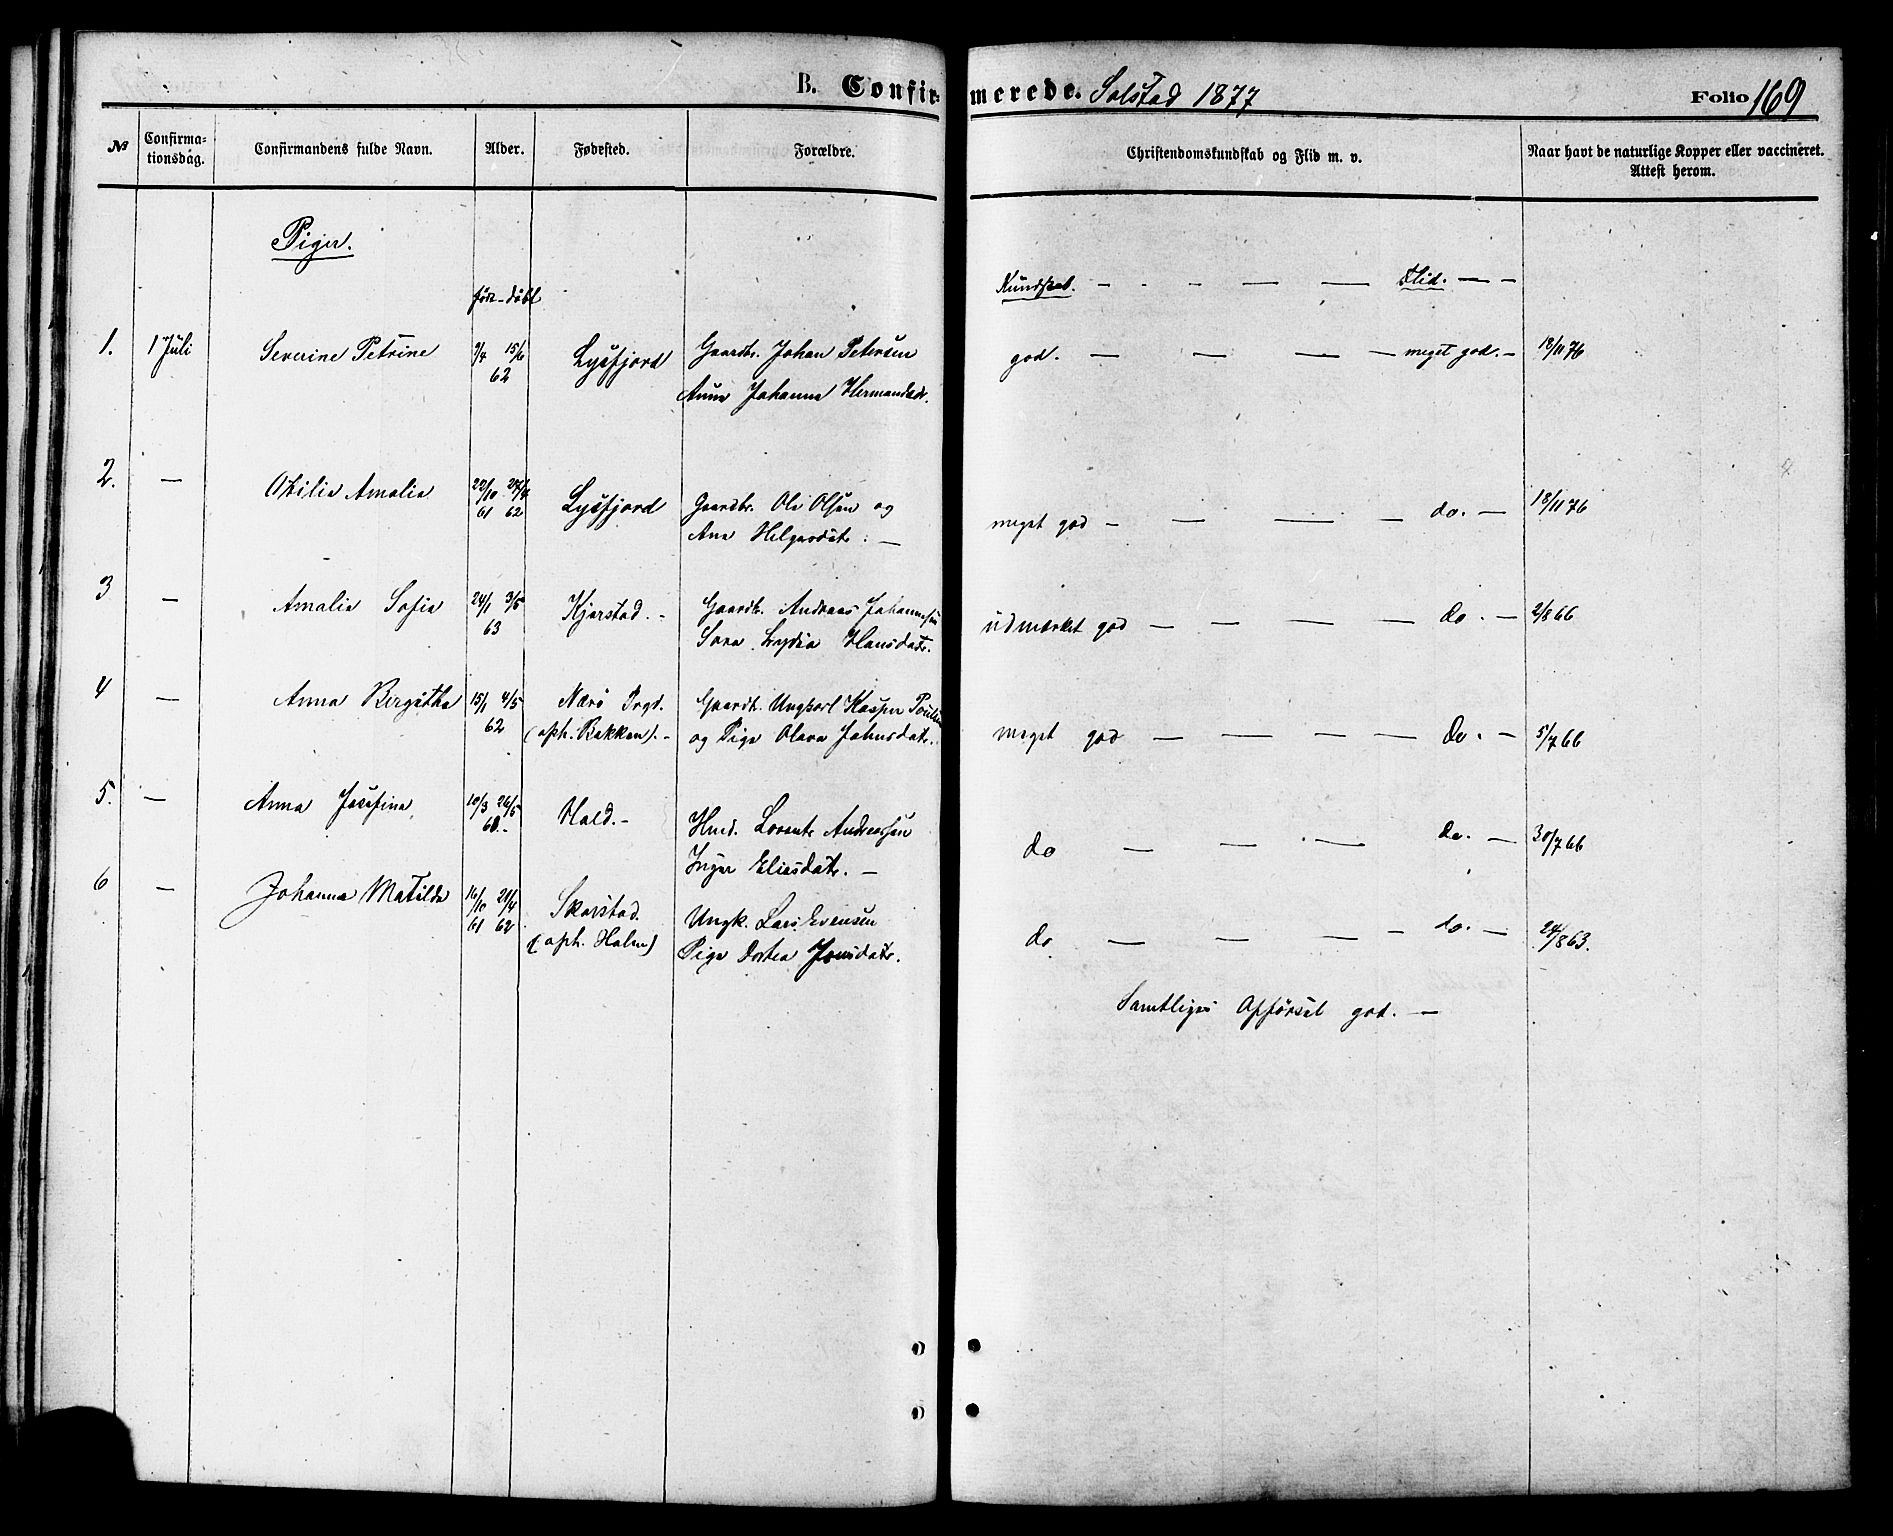 B. Confirmerede. Solstad 1877 Folio 169
№ Confirmationsdag. Confirmandens fulde Navn. Alder. Fødested. Forældre. Christendomskundskab og Flid m. v. Naar havt de naturlige Kopper eller vaccineret. Attest herom.
Piger.
født døbt Kundskab. — - - — — Flid. — -
1. 1 Juli Severine Petrine 9/4 15/6 62 Lysfjord Gaardbr. Johan Petersen god. — — — — meget god. - 18/11 76
Anna Johanna Hermandsdr.
2. — Otilie Amalie 22/10 61 27/4 62 Lysfjord Gaardbr. Ole Olsen og meget god - — — — do. — 18/11 76
Ane Helgesdatr. —
3 — Amalie Sofie 24/1 3/5 63 Kjerstad. - Gaardb. Andreas Johannesen udmærket god — — — — do. — 2/8 66
Sara Lydia Hansdatr.
4 — Anna Birgitha 15/1 4/5 62 Nærö Prgd. Gaardb. Ungkarl Kasper Poulsen meget god — — — — do. — 5/7 66
(oph. Bakken). - og Pige Olava Johnsdatr.
5. — Anna Josefine, 10/3 26/5 60. - Hald. - Hmd. Lorents Andreassen do — — — do. — 30/7 66
Inger Eliesdatr. —
6 — Johanna Matilde 16/10 61 21/4 62 Skarstad. Ungk. Lars Evensen do — — — - do. — 24/8 63.
(oph. Holm) Pige Dortea Jonsdatr.
Samtliges Opførsel god. —